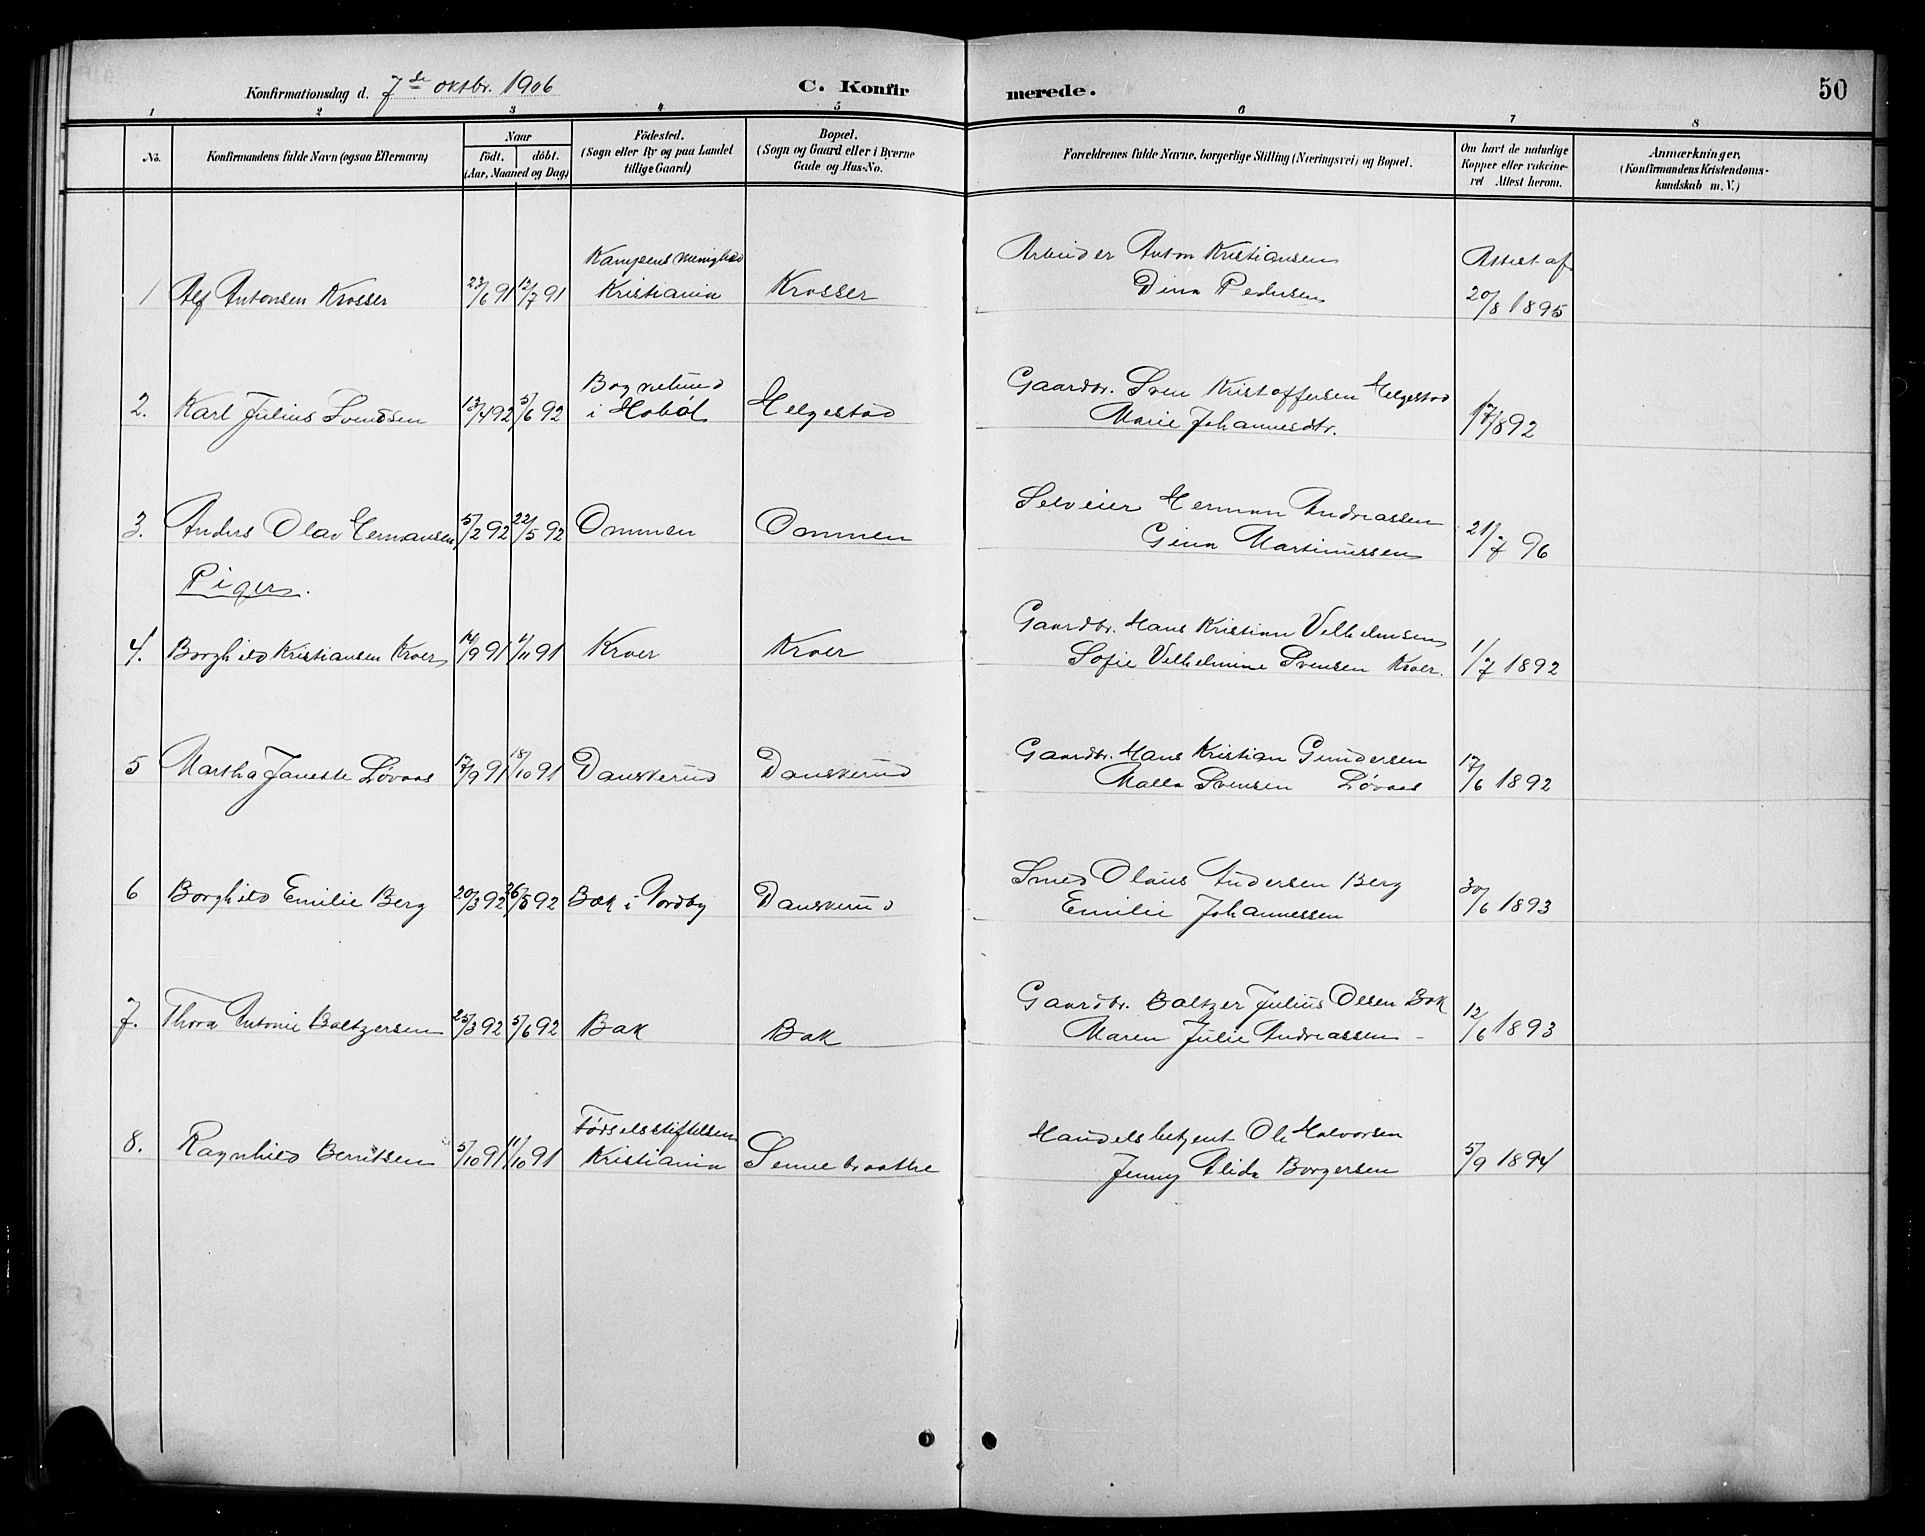 Konfirmationsdag d. 7de oktbr. 1906
C. Konfirmerede.
50
1 2 3 4 5 6 7 8
No.
Konfirmandens fulde Navn (ogsaa Efternavn)
Naar
födt. döbt.
(Aar, Maaned og Dag)
Födested.
(Sogn eller By og paa Landet
tillige Gaard)
Bopæl.
(Sogn og Gaard eller i Byerne
Gade og Hus-No.
Forældrenes fulde Navne, borgerlige Stilling (Næringsvei) og Bopæl.
Om havt de naturlige
Kopper eller vakcine-
ret Attest herom.
Anmærkninger,
(Konfirmandens Kristendoms-
kundskab m. V.)
1 Alf Antonsen Krosser 23/6 91 12/7 91 Kampens menighed
Kristiania Krosser Arbeider Anton Kristiansen
Dina Pedersen Attest af
20/8 1895
2. Karl Julius Svendsen 13/4 92 5/6 92
i Hobøl Helgestad Gaardbr. Sven Kristoffersen Helgestad
Marie Johannesdtr. 17/8 92
3. Anders Olav Hermansen 5/2 92 22/5 92 Ommen Ommen Selveier Herman Andreassen
Gina Martinussen 21/7 96
Piger.
4. Borghild Kristiansen Kroer 14/9 91 1/11 91 Kroer Kroer Gaardbr. Hans Kristian Vilhelmsen
Sofie Vilhelmine Svensen Kroer. 1/7 1892
5 Martha Janette Løvaas 17/9 91 18/10 91 Danskerud Danskerud Gaardbr. Hans Kristian Gundersen
Malla Svensen Løvaas 17/6 1892
6 Borghild Emilie Berg 20/3 92 26/5 92 Bæk i Nordby Danskerud Smed Olaus Andersen Berg
Emilie Johannessen 30/6 1893
7. Thora Antonie Baltzersen 25/3 92 5/6 92 Bak Bak Gaardbr. Baltzer Julius Olsen Bak
Maren Julie Andreassen 12/6 1893
8. Ragnhild Berntsen 5/10 91 11/10 91 Fødselsstiftelsen
Kristiania Sennebraathe Handelsbetjent Ole Halvorsen
Jenny Alida Borgersen 5/9 1894